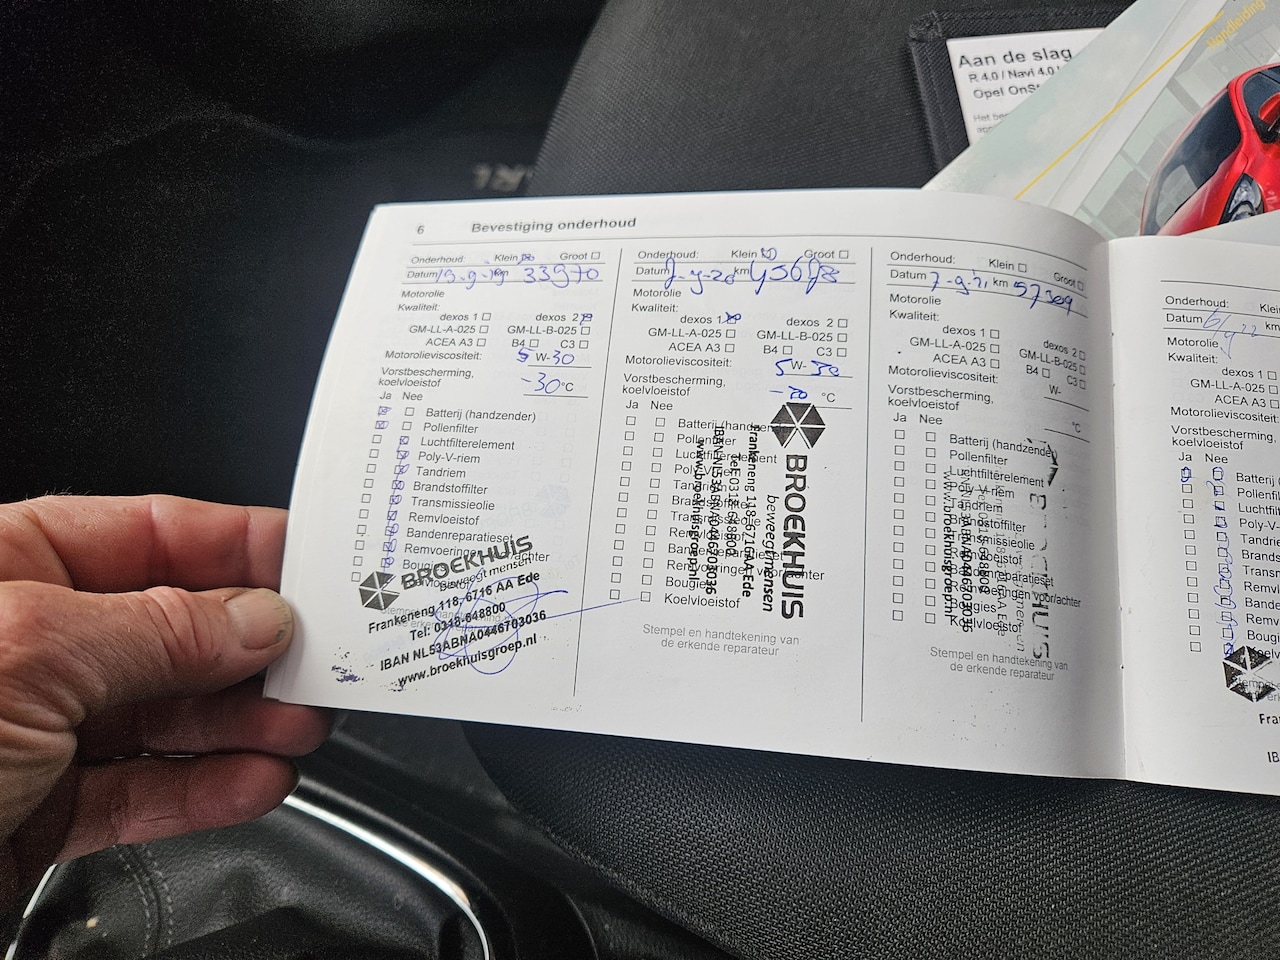 Aan de slag
R 4.0 / Navi 4.0
Opel OnSt
Handleiding
6 Bevestiging onderhoud
Onderhoud: Klein Groot
Datum km 33970
Motorolie
Kwaliteit:
dexos 1 dexos 2
GM-LL-A-025 GM-LL-B-025
ACEA A3 B4 C3
Motorolieviscositeit: 5 W-30
Vorstbescherming,
koelvloeistof -30°C
Ja Nee
Batterij (handzender)
Pollenfilter
Luchtfilterelement
Poly-V-riem
Tandriem
Brandstoffilter
Transmissieolie
Remvloeistof
Bandenreparatieset
Remvoeringen achter
Bougies
BROEKHUIS
beweegt mensen
Frankeneng 118, 6716 AA Ede
Tel: 0318-648800
IBAN NL53ABNA0446703036
www.broekhuisgroep.nl
Onderhoud: Klein Groot
Datum km 45678
Motorolie
Kwaliteit:
dexos 1 dexos 2
GM-LL-A-025 GM-LL-B-025
ACEA A3 B4 C3
Motorolieviscositeit: 5 W-30
Vorstbescherming,
koelvloeistof °C
Ja Nee
Batterij (handzender)
Pollenfilter
Luchtfilterelement
Poly-V-riem
Tandriem
Brandstoffilter
Transmissieolie
Remvloeistof
Bandenreparatieset
Remvoeringen voor/achter
Bougies
Koelvloeistof
BROEKHUIS
beweegt mensen
Frankeneng 118-6716AA-Ede
Tel: 0318-648800
www.broekhuisgroep.nl
Stempel en handtekening van
de erkende reparateur
Onderhoud: Klein Groot
Datum 7-9-21 km 57309
Motorolie
Kwaliteit:
dexos 1 dexos 2
GM-LL-A-025 GM-LL-B-025
ACEA A3 B4 C3
Motorolieviscositeit: W-
Vorstbescherming,
koelvloeistof °C
Ja Nee
Batterij (handzender)
Pollenfilter
Luchtfilterelement
Poly-V-riem
Tandriem
Brandstoffilter
Transmissieolie
Remvloeistof
Bandenreparatieset
Remvoeringen voor/achter
Bougies
Koelvloeistof
www.broekhuisgroep.nl
Stempel en handtekening van
de erkende reparateur
Onderhoud: Klei
Datum
Motorolie
Kwaliteit:
dexos 1
GM-LL-A-025
ACEA A3
Motorolieviscositeit:
Vorstbescherming,
koelvloeistof
Ja Nee
Batterij
Pollenfil
Luchtfilt
Poly-V-
Tandrie
Brands
Transm
Remvl
Bande
Remv
Bougi
Fra
IB